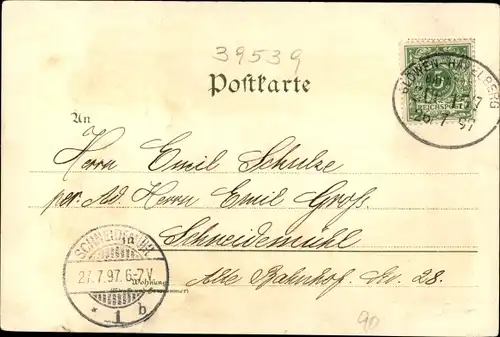 39539
Postkarte
GLÖWEN-HAVELBERG
REICHSPOST
26 7 97
An
Herrn Emil Schulze
per. Ad. Herrn Emil Groß.
in
Schneidemühl
SCHNEIDEMÜHL
27.7.97.6-7.V.
Wohnung
Alte Bahnhof. Str. 28.
* 1 b
90